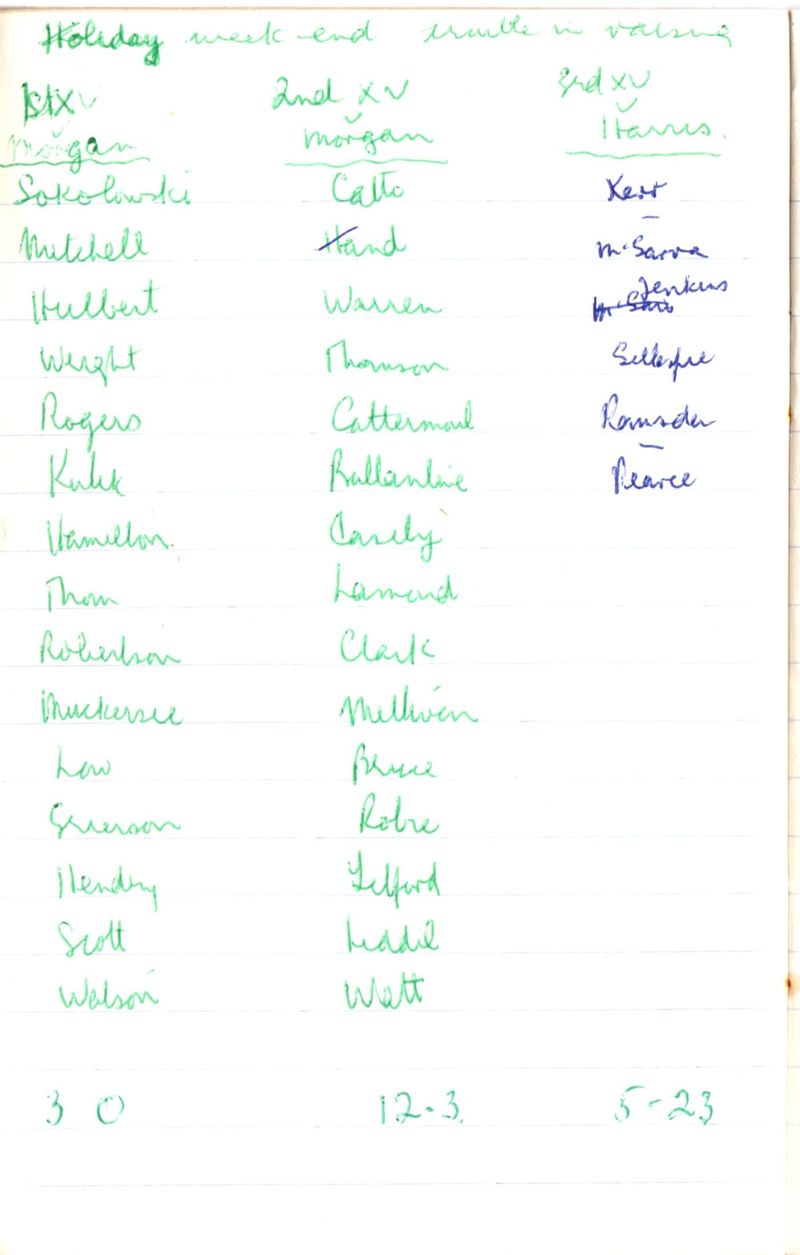 Holiday week-end trouble in raising
1st XV 2nd XV 3rd XV
v Morgan v Morgan v Harris.
Sokolowski Catto Kerr
Mitchell Hand
Hulbert Warren Jenkins
Wright Thomson Gillespie
Rogers Cattermoul Ramsden
Kulik Ballantine Pearce
Hamilton Casely
Thom Lamond
Robertson Clark
Muckersie
Low Bryce
Grierson
Hendry Telford
Scott Liddel
Watson Watt
3 0 12-3. 5-23